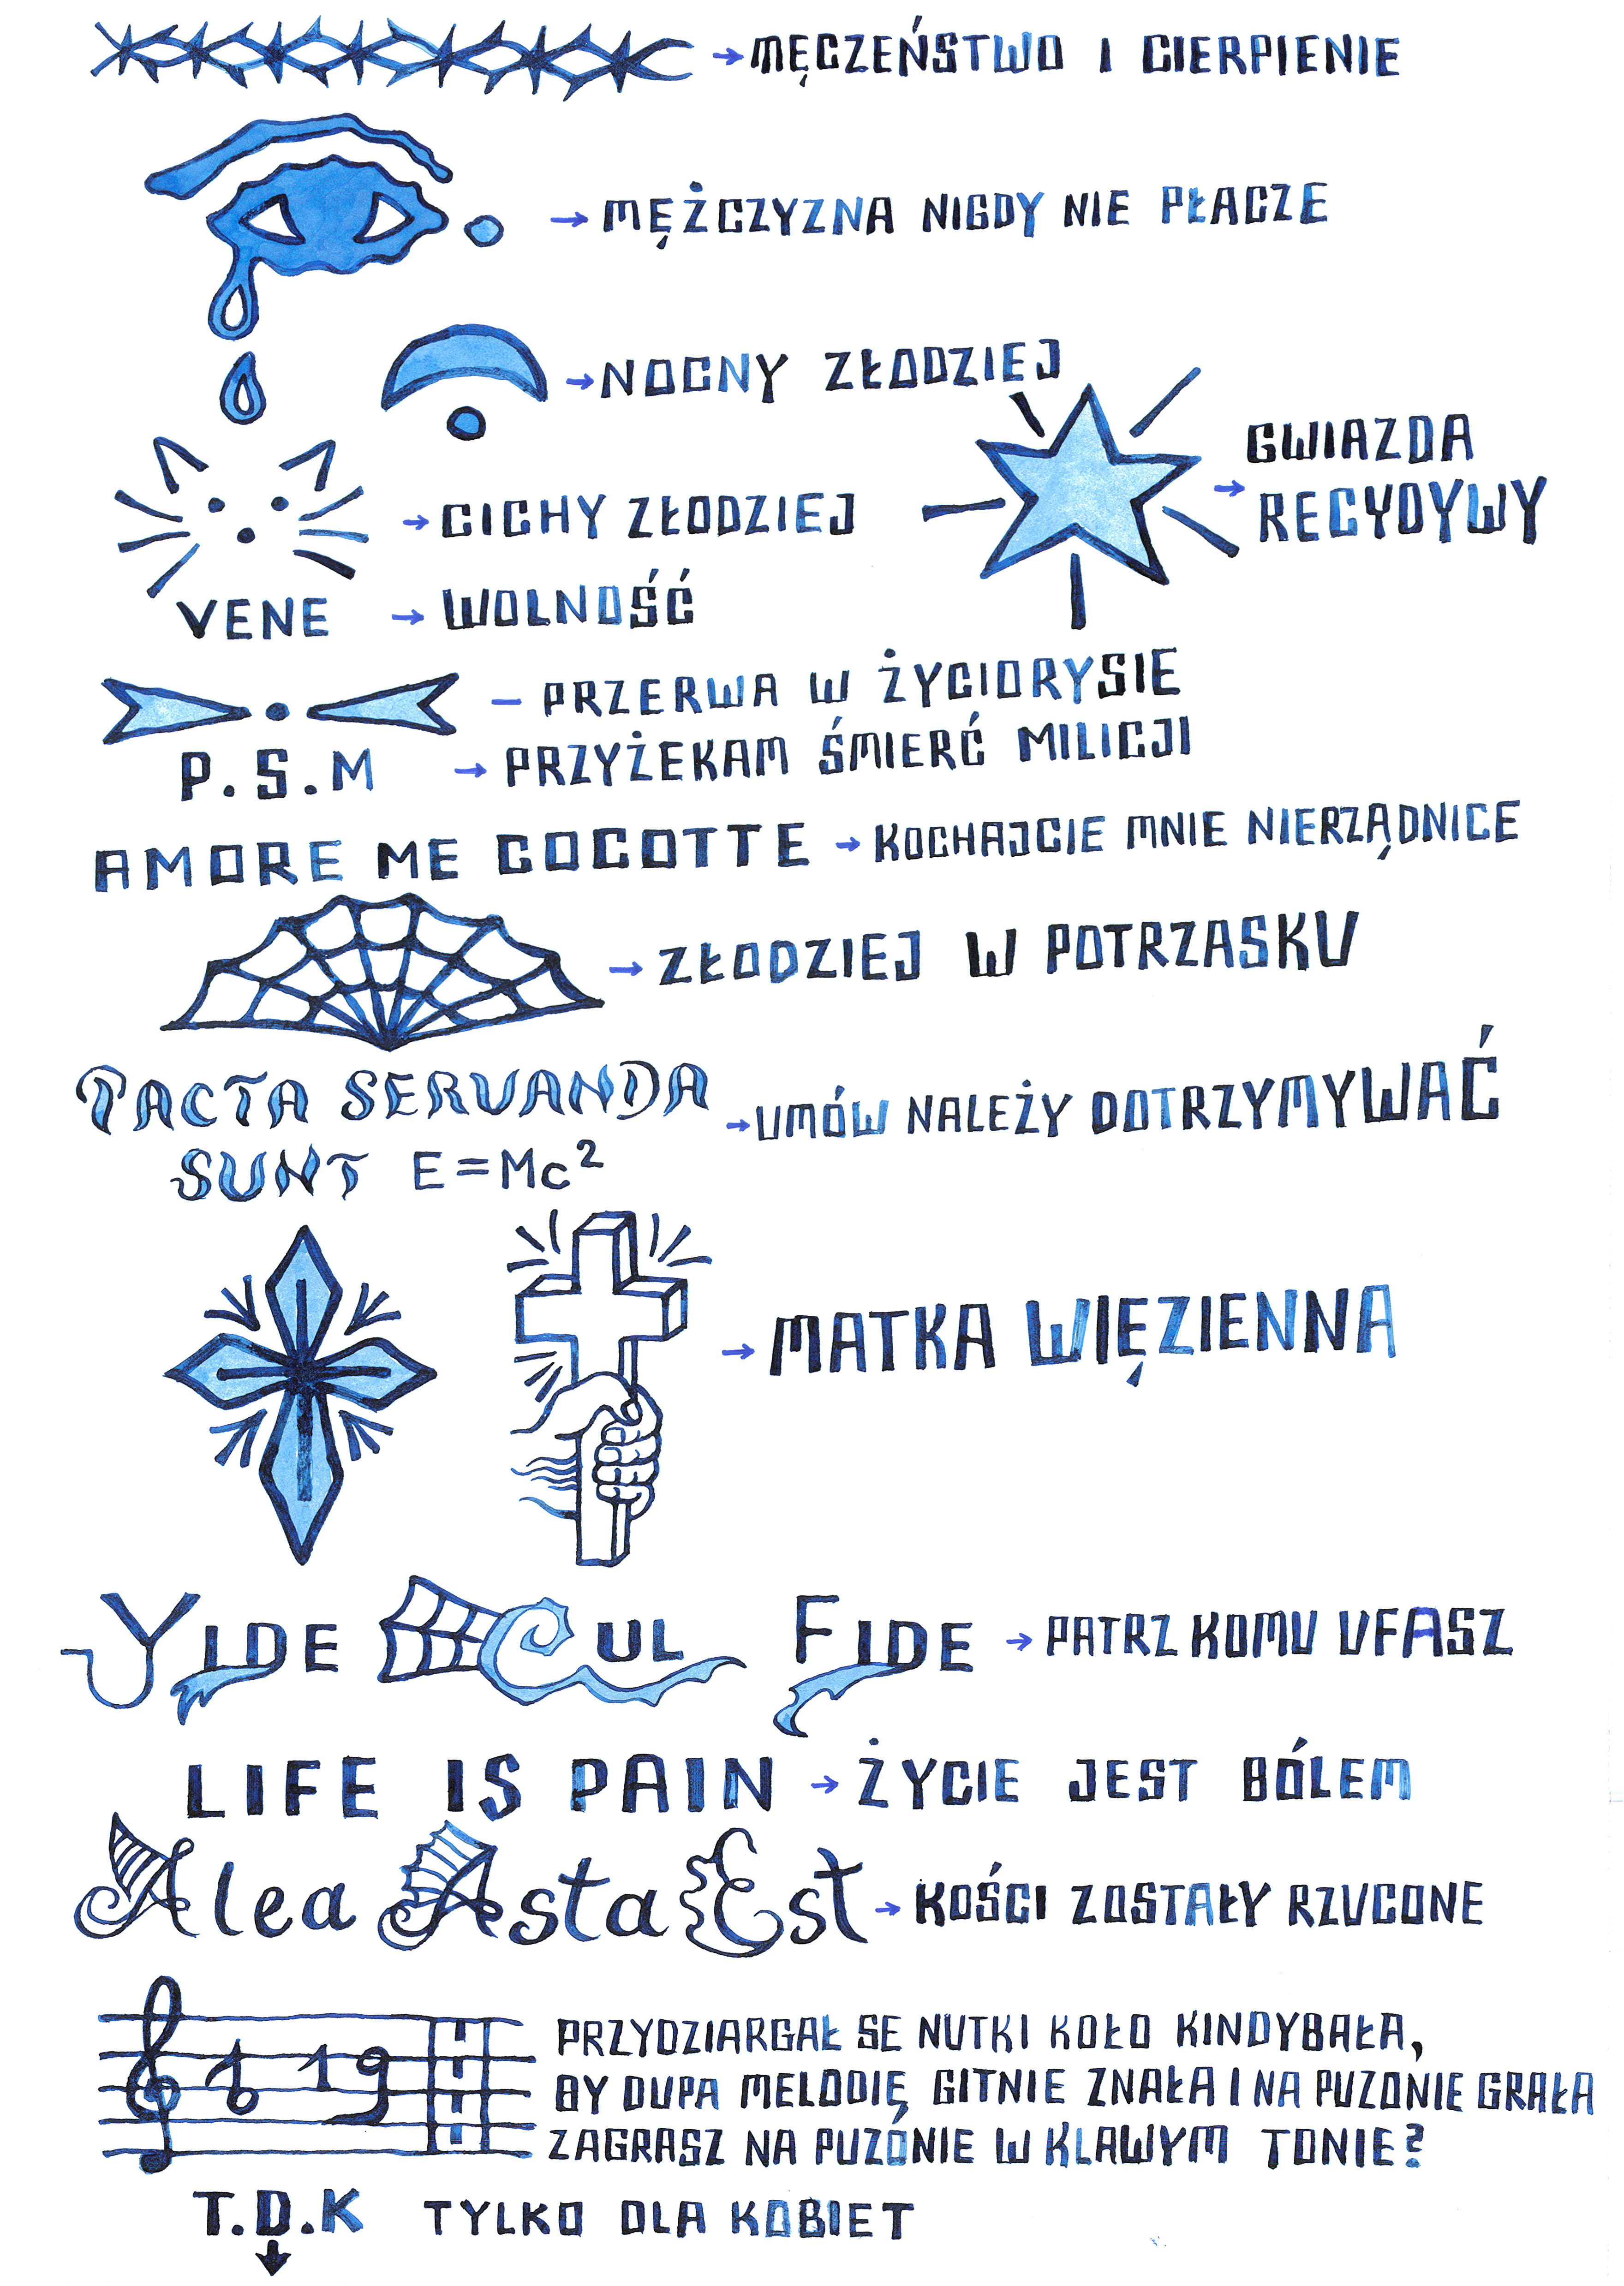 → MĘCZEŃSTWO I CIERPIENIE
→ MĘŻCZYZNA NIGDY NIE PŁACZE
→ NOCNY ZŁODZIEJ
→ GWIAZDA
RECYDYWY
→ CICHY ZŁODZIEJ
VENE → WOLNOŚĆ
– PRZERWA W ŻYCIORYSIE
P.S.M → PRZYŻEKAM ŚMIERĆ MILICJI
AMORE ME COCOTTE → KOCHAJCIE MNIE NIERZĄDNICE
→ ZŁODZIEJ W POTRZASKU
PACTA SERVANDA → UMÓW NALEŻY DOTRZYMYWAĆ
SUNT E=Mc²
→ MATKA WIĘZIENNA
YIDE CUL FIDE → PATRZ KOMU UFASZ
LIFE IS PAIN → ŻYCIE JEST BÓLEM
Alea Asta Est → KOŚCI ZOSTAŁY RZUCONE
PRZYDZIARGAŁ SE NUTKI KOŁO KINDYBAŁA,
BY DUPA MELODIĘ GITNIE ZNAŁA I NA PUZONIE GRAŁA
ZAGRASZ NA PUZÓNIE W KLAWYM TONIE?
T.D.K TYLKO DLA KOBIET